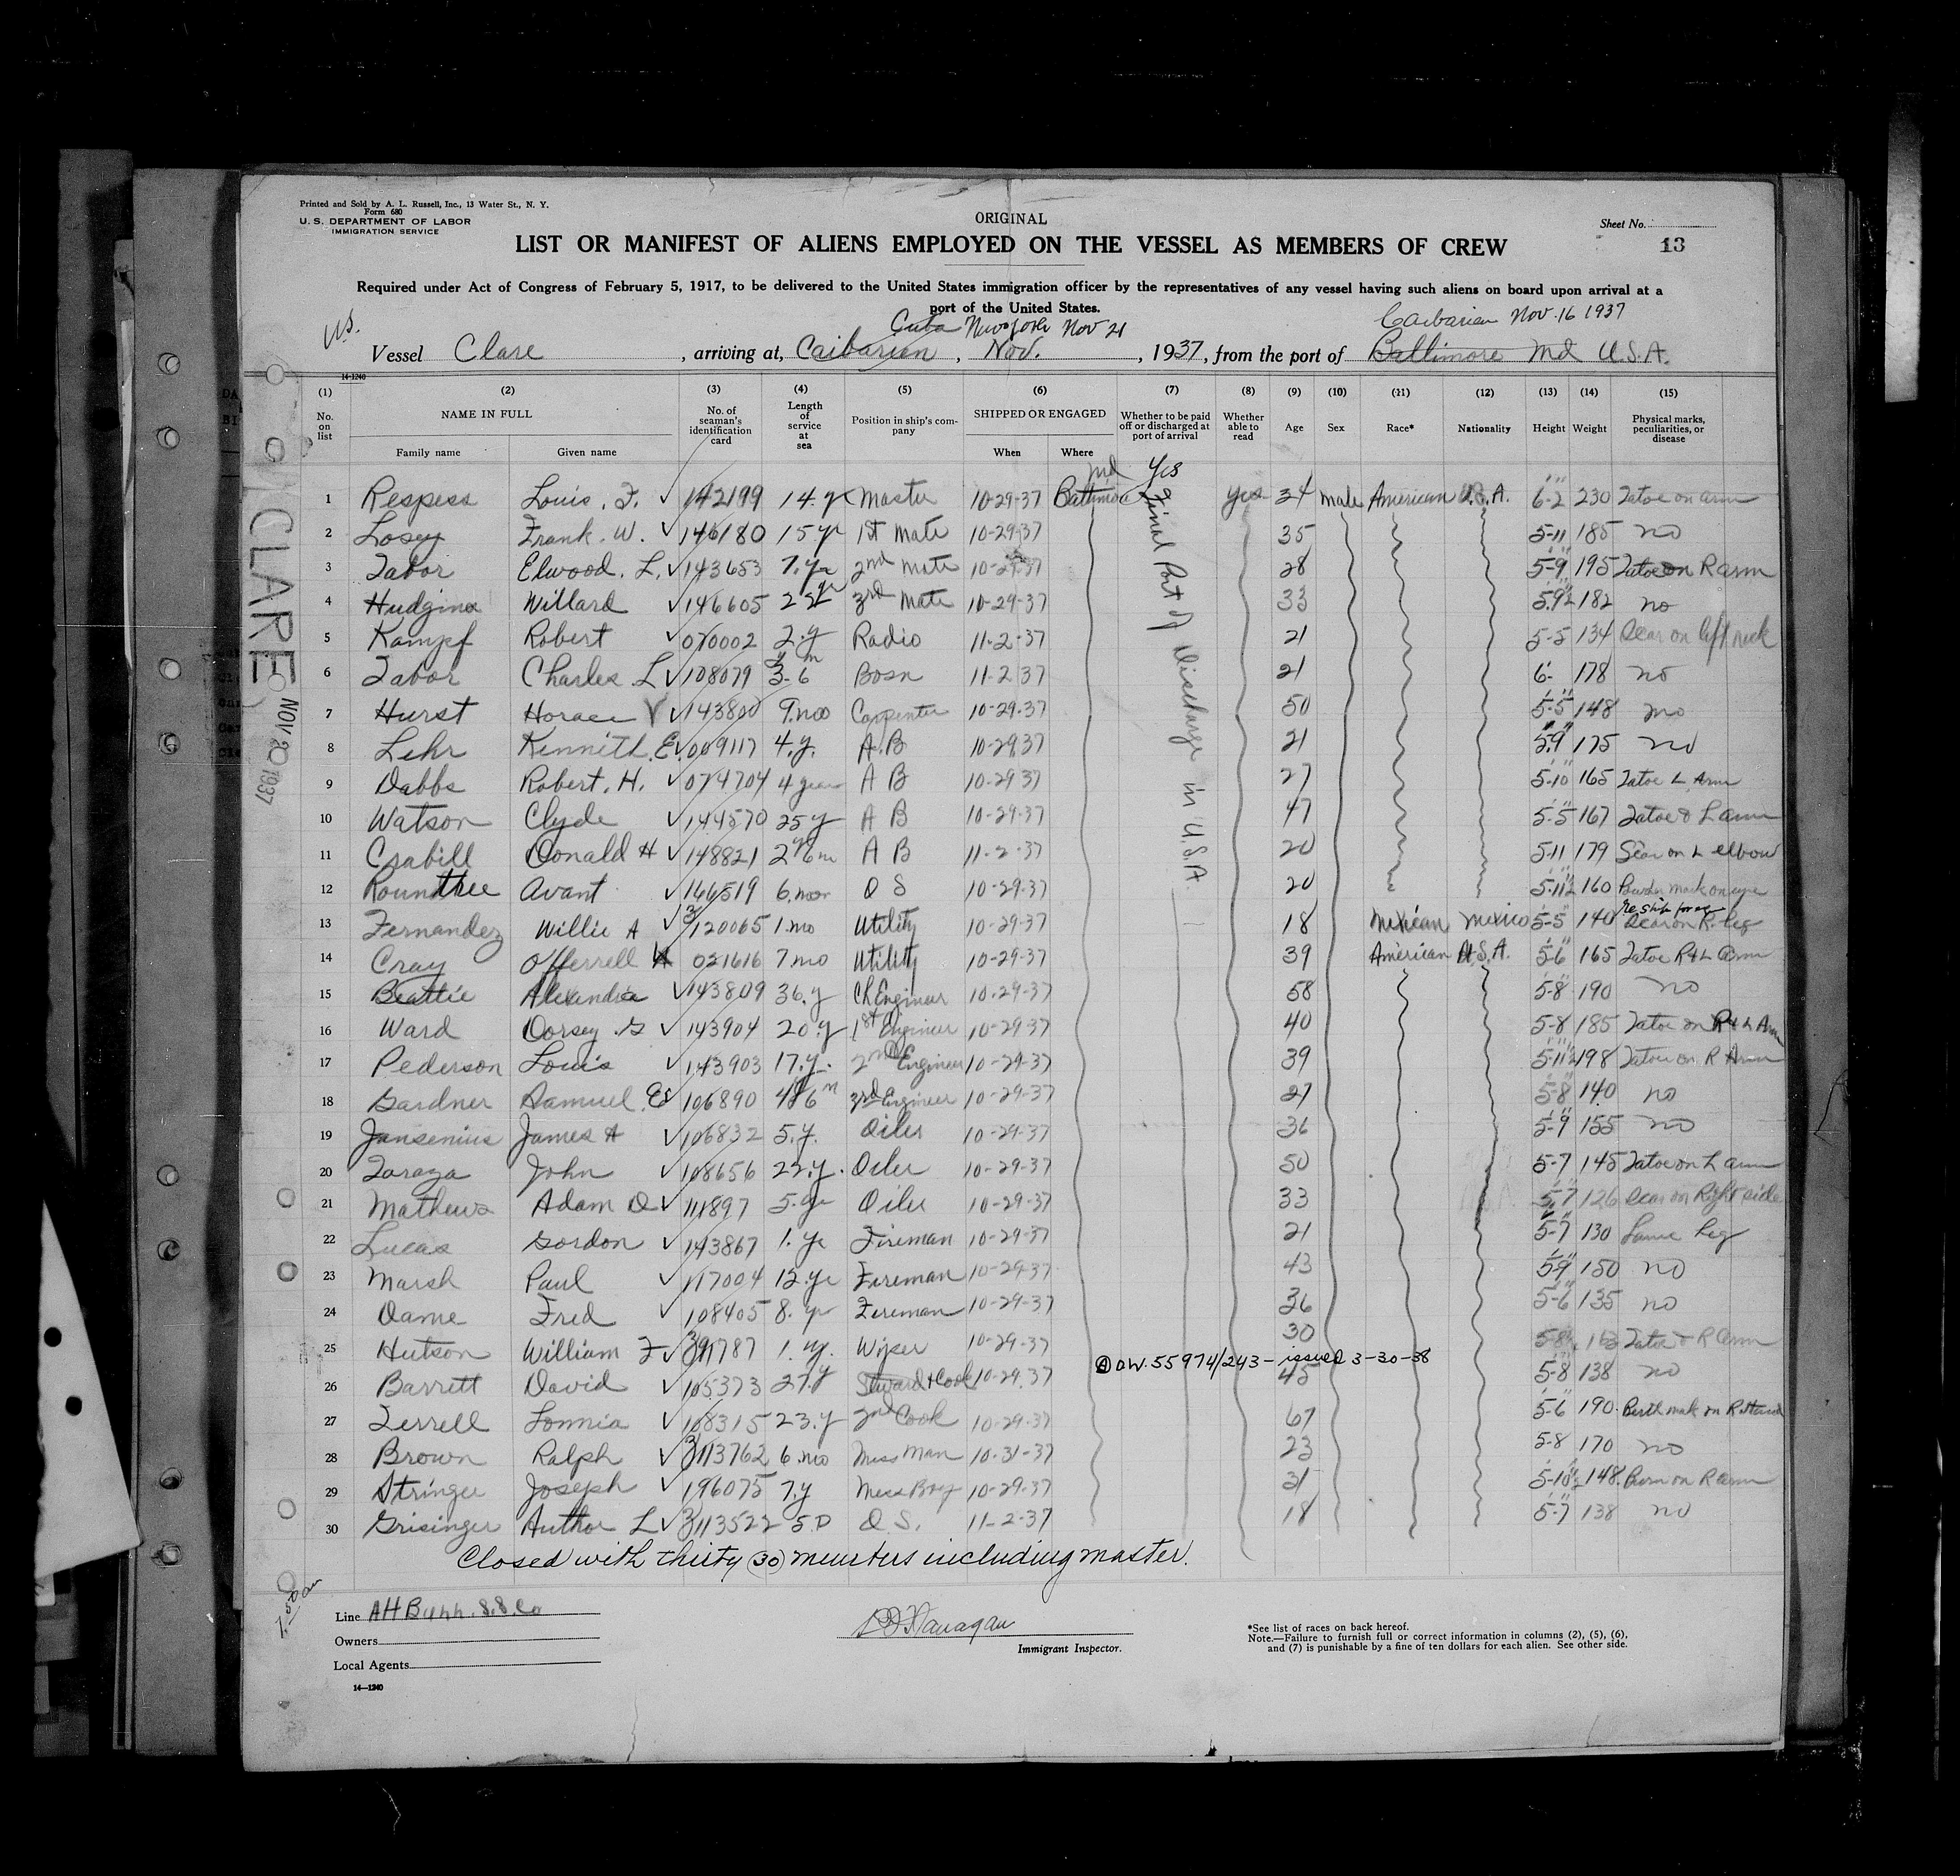 Printed and Sold by A. L. Russell, Inc., 13 Water St., N. Y.
Form 680
U. S. DEPARTMENT OF LABOR
IMMIGRATION SERVICE
ORIGINAL
Sheet No.
13
LIST OR MANIFEST OF ALIENS EMPLOYED ON THE VESSEL AS MEMBERS OF CREW
Required under Act of Congress of February 5, 1917, to be delivered to the United States immigration officer by the representatives of any vessel having such aliens on board upon arrival at a
port of the United States.
Cuba New York Nov 21 Caibarien Nov. 16 1937
Vessel Clare, arriving at, Caibarien, Nov., 1937, from the port of Baltimore Md U.S.A.
14-1240
(1) (2) (3) (4) (5) (6) (7) (8) (9) (10) (11) (12) (13) (14) (15)
No. on list NAME IN FULL Family name Given name No. of seaman's identification card Length of service at sea Position in ship's company SHIPPED OR ENGAGED When Where Whether to be paid off or discharged at port of arrival Whether able to read Age Sex Race* Nationality Height Weight Physical marks, peculiarities, or disease
Md Yes
1 Respess Louis. F. 142199 14. y Master 10-29-37 Baltimore yes 34 male American U.S.A. 6-2 230 Tatoe on arm
Final Port of Discharge in U.S.A.
2 Losey Frank. W. 146180 15 yr 1st Mate 10-29-37 35 5-11 185 no
3 Tabor Elwood. L. 143653 7. yr 2nd Mate 10-29-37 28 5-9 195 Tatoe on R arm
4 Hudgins Willard 146605 3rd Mate 10-29-37 33 5-9½ 182 no
5 Kampf Robert 070002 2. y Radio 11-2-37 21 5-5 134 Scar on left neck
6 Tabor Charles. L 108079 3y-6m Bosn 11-2-37 21 6- 178 no
7 Hurst Horace V 143800 9. mos Carpenter 10-29-37 50 5-5 148 no
8 Lehr Kennith. E. 009117 4. y. A.B 10-29-37 21 5-9 175 no
9 Dabbs Robert. H. 074704 4 years A B 10-29-37 27 5-10 165 Tatoe L. Arm
10 Watson Clyde 144570 25 y A B 10-29-37 47 5-5 167 Tatoe L arm
11 Crabill Donald H 148821 2y6m A B 11-2-37 20 5-11 179 Scar on L elbow
12 Roundtree Avant 146519 6. mos O S 10-29-37 20 5-11½ 160 Powder mark on eye
13 Fernandez Willie A 120065 1. mo Utility 10-29-37 18 Mexican Mexico 5-5 140 Scar on R. leg
14 Cray Offerrell 021616 7. mo Utility 10-29-37 39 American U.S.A. 5-6 165 Tatoe R+L arm
15 Beattie 143809 36. y Ch Engineer 10-29-37 58 5-8 190 no
16 Ward Dorsey. G 143904 20. y 1st Engineer 10-29-37 40 5-8 185 Tatoe on R+L Arm
17 Pederson Louis 143903 17. y. 2nd Engineer 10-29-37 39 5-11½ 198 Tatoe on R Arm
18 Gardner Samuel. E 106890 4y6m 3rd Engineer 10-29-37 27 5-8 140 no
19 Jansenius James A 106832 5. y. Oiler 10-29-37 36 5-9 155 no
20 Zaraza John 108656 22. y. Oiler 10-29-37 50 5-7 145 Tatoe on L arm
21 Mathews Adam D 111897 5. yr Oiler 10-29-37 33 5-7 126 Scar on Right side
22 Lucas Gordon 143867 1. yr Fireman 10-29-37 21 5-7 130 Lame Leg
23 Marsh Paul 117004 12. yr Fireman 10-29-37 43 5-9 150 no
24 Dame Fred 108405 8. yr Fireman 10-29-37 36 5-6 135 no
25 Hutson William F 1. yr. Wiper 10-29-37 30 5-8 Tatoe R arm
D.W. 55974/243 - issued 3-30-38
26 Barrett David 105373 27. y Steward + Cook 10-29-37 45 5-8 138 no
27 Terrell Lonnia 108315 23. y 2nd Cook 10-29-37 67 5-6 190 Birth mark on R Hand
28 Brown Ralph 113762 6. mo Mess Man 10-31-37 23 5-8 170 no
29 Stringer Joseph 196075 7. y Mess Boy 10-29-37 31 5-10½ 148. Burn on R arm
30 Grisinger Author L 113522 O.S. 11-2-37 18 5-7 138 no
Closed with thirty (30) members including master.
Line AH Bull. S.S. Co
Owners
Local Agents
14—1240
Flanagan
Immigrant Inspector.
*See list of races on back hereof.
Note.—Failure to furnish full or correct information in columns (2), (5), (6),
and (7) is punishable by a fine of ten dollars for each alien. See other side.
CLARE
NOV 20 1937